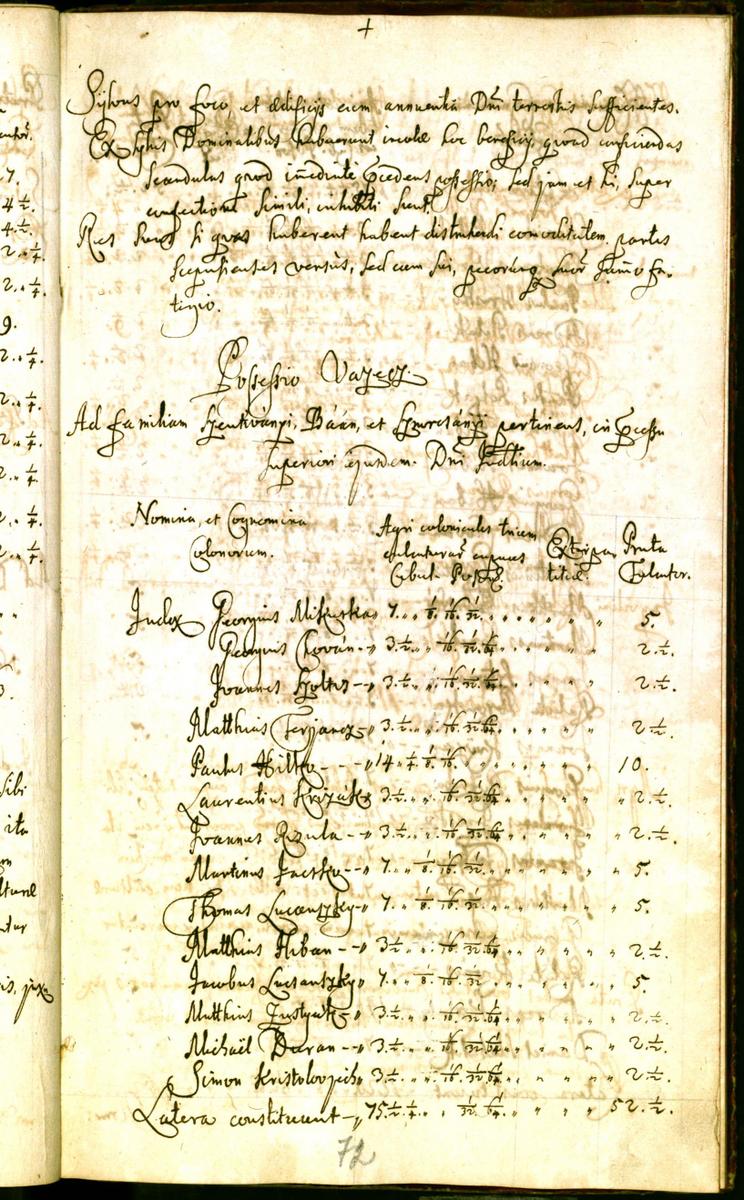 +
Sylvas pro foco, et ædificijs cum annuentia Dni terrestris sufficientes.
Ex sylvis Dominalibus habuerunt incolæ hoc beneficij, quod conficiendas
Scandulas quod possessio; sed jam et hi, super
simili, inhibiti sunt.
Res suas si quas haberent habent distrahendi comoditatem partes
Scepusienses versùs, sed cum sui, pecorumq suor Fa-
tigio.
Possessio Vazecz.
Ad familiam Szentiványi, Báán, et Szmrecsányi pertinens, in Processu
superiori ejusdem Dni Judlium.
Nomina, et Cognomina
Colonorum.
Agri coloniales trium
calcaturar capaces
Cubul. Poson.
Extirpa-
titiæ.
Prata
Falcator.
Judex Georgius Mikuska 7. „ 1/8. 1/16. 1/32. „ „ „ 5.
Georgius Chován – „ 3. 1/2. „ „ 1/16. 1/32. 1/64. „ „ „ 2. 1/2.
Joannes Szoltis – „ 3. 1/2. „ „ 1/16. 1/32. 1/64. „ „ „ 2. 1/2.
Matthias Ferjancz „ 3. 1/2. „ „ 1/16. 1/32. 1/64. „ „ „ 2. 1/2.
Paulus Hilko – – – „ 14 „ 1/4. 1/8. 1/16. „ „ „ 10.
Laurentius Krizák „ 3. 1/2. „ „ 1/16. 1/32. 1/64. „ „ „ 2. 1/2.
Joannes Rzula – „ 3. 1/2. „ „ 1/16. 1/32. 1/64. „ „ „ 2. 1/2.
Martinus Jacsko „ 7. „ 1/8. 1/16. 1/32. „ „ „ 5.
Thomas Lucsanszky „ 7. „ 1/8. 1/16. 1/32. „ „ „ 5.
Matthias Hiban – – „ 3 1/2. „ „ 1/16. 1/32. 1/64. „ „ „ 2. 1/2.
Jacobus Lucsanszky „ 7. „ 1/8. 1/16. 1/32. „ „ „ 5.
Matthias „ 3. 1/2. „ „ 1/16. 1/32. 1/64. „ „ „ 2. 1/2.
Michaël Duran – „ 3. 1/2. „ „ 1/16. 1/32. 1/64. „ „ „ 2. 1/2.
Simon „ 3. 1/2. „ „ 1/16. 1/32. 1/64. „ „ „ 2. 1/2.
Latera constituunt – „ 75. 1/2. 1/4. „ „ 1/32. 1/64. „ „ „ 52. 1/2.
72